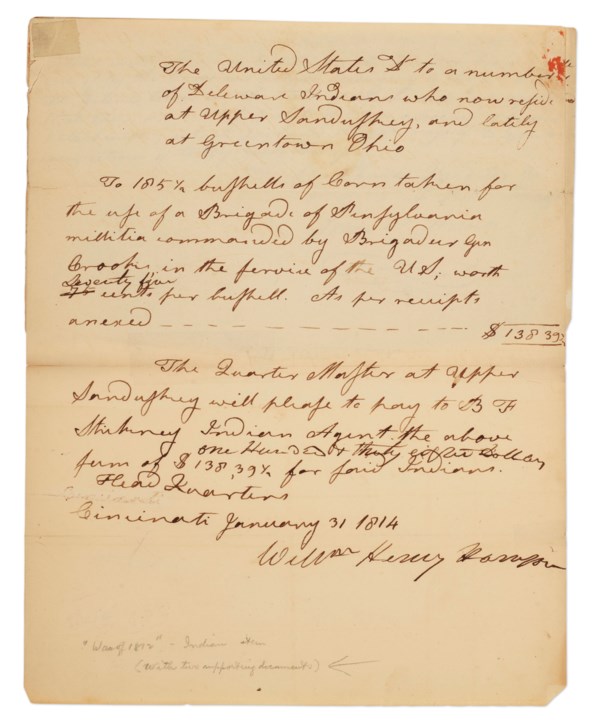 The United States Dr to a number
of Deleware Indians who now reside
at Upper Sandusky, and latily
at Greentown Ohio
To 185¼ bushells of Corn taken for
the use of a Brigade of Pensylvania
millitia commanded by Brigadier Gen
Crooks, in the service of the US; worth
Seventy five
cents per bushell. As per receipts
anexed — — — — — — — $ 138 39½
The Quarter Master at Upper
Sandusky will please to pay to B F
Stickney Indian Agent the above
one Hund d thirty eight Dollars
sum of $ 138,39½ for said Indians.
Head Quarters
Cincinati January 31 1814
Willm Henry Harrison
"War of 1812" - Indian item
(with two supporting documents) ←